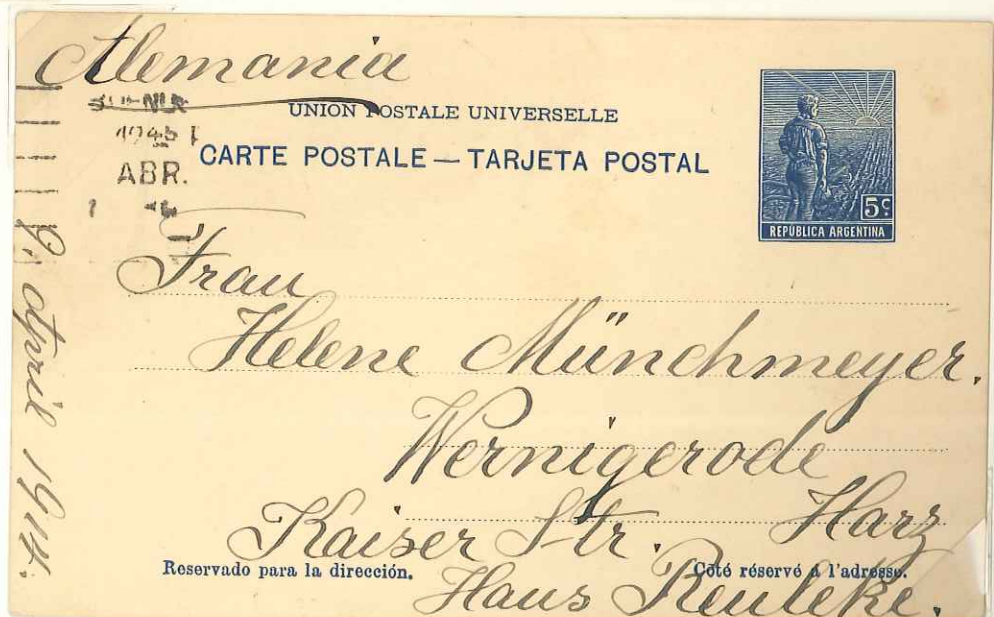 Alemania
UNION POSTALE UNIVERSELLE
CARTE POSTALE — TARJETA POSTAL
ABR.
5c
REPÚBLICA ARGENTINA
9. April 1914.
Frau
Helene Münchmeyer.
Wernigerode
Harz
Kaiser Str.
Haus Reuleke.
Reservado para la dirección.
Côté réservé à l'adresse.